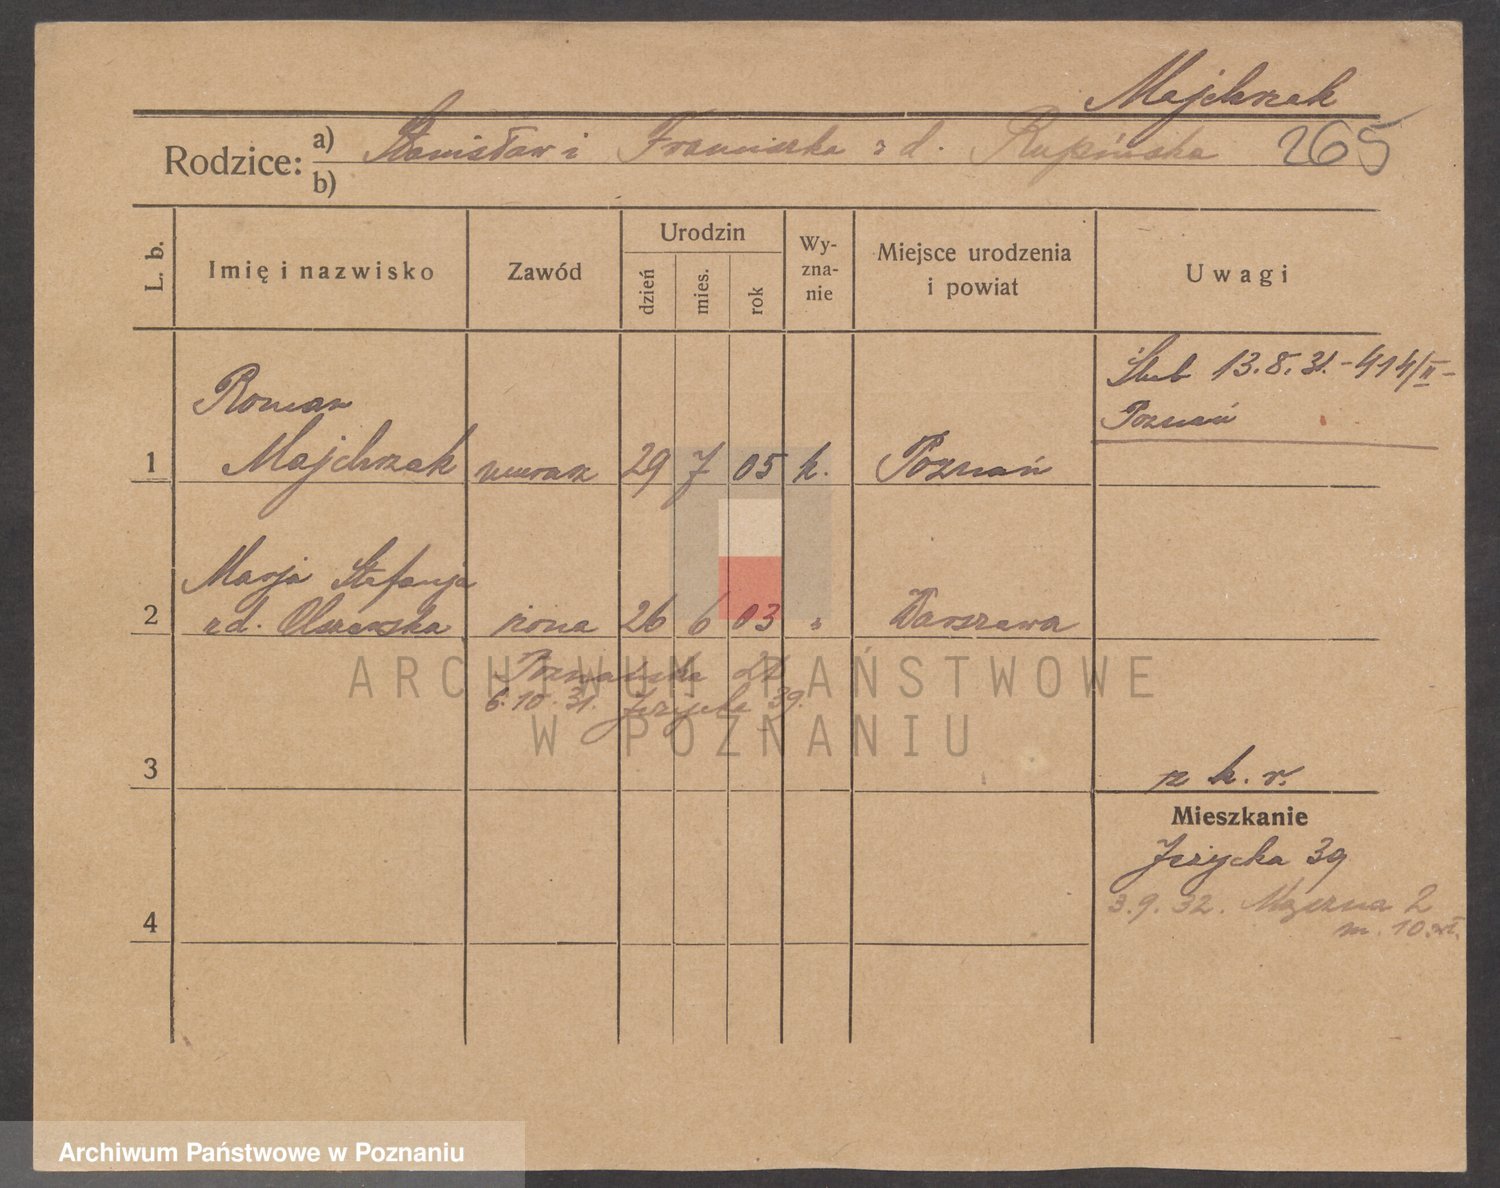 Majchrzak
Rodzice: a) Stanisław i Franciszka z d. Rupińska 265
b)
L. b.
Imię i nazwisko
Zawód
Urodzin
dzień
mies.
rok
Wy-
zna-
nie
Miejsce urodzenia
i powiat
Uwagi
Ślub 13.8.31. - 414/II -
Poznań
Roman
1 Majchrzak murarz 29 7 05 k. Poznań
Marja Stefanja
2 zd. Olszewska żona 26 6 03 " Warszawa
Poznańska
6.10.31. Jeżycka 39.
ARCHIWUM PAŃSTWOWE
W POZNANIU
3
z k. r.
Mieszkanie
Jeżycka 39
3.9.32. 2
m. 10
4
Archiwum Państwowe w Poznaniu